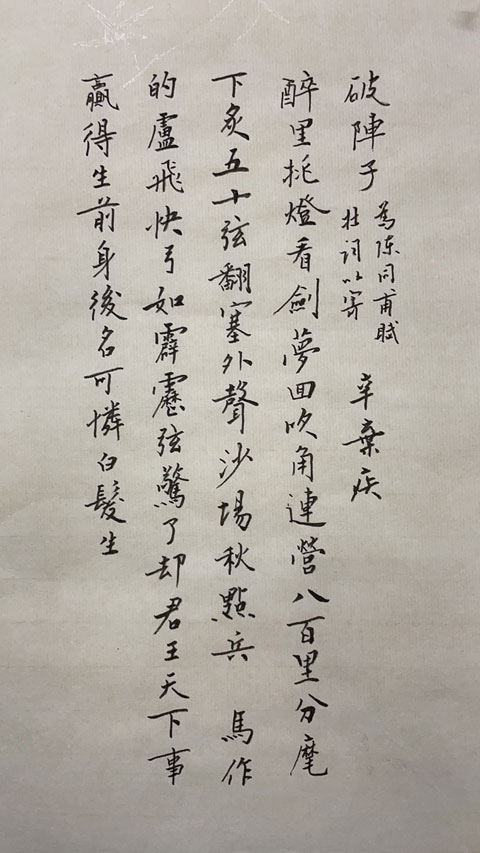 破陣子 為陳同甫賦
壯詞以寄 辛棄疾
醉里挑燈看劍夢回吹角連營八百里分麾
下炙五十弦翻塞外聲沙場秋點兵 馬作
的盧飛快弓如霹靂弦驚了却君王天下事
贏得生前身後名可憐白髮生